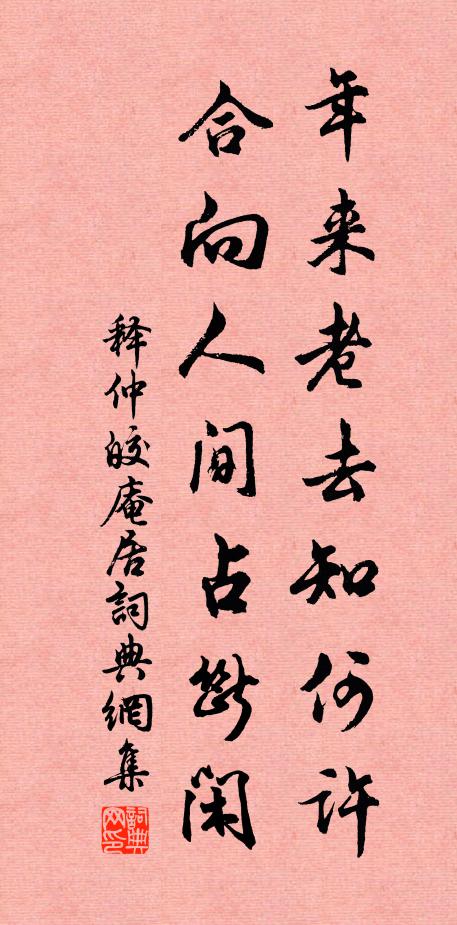 年来老去知何许
合向人间占断闲
释仲皎庵居詞典網集
詞典网印